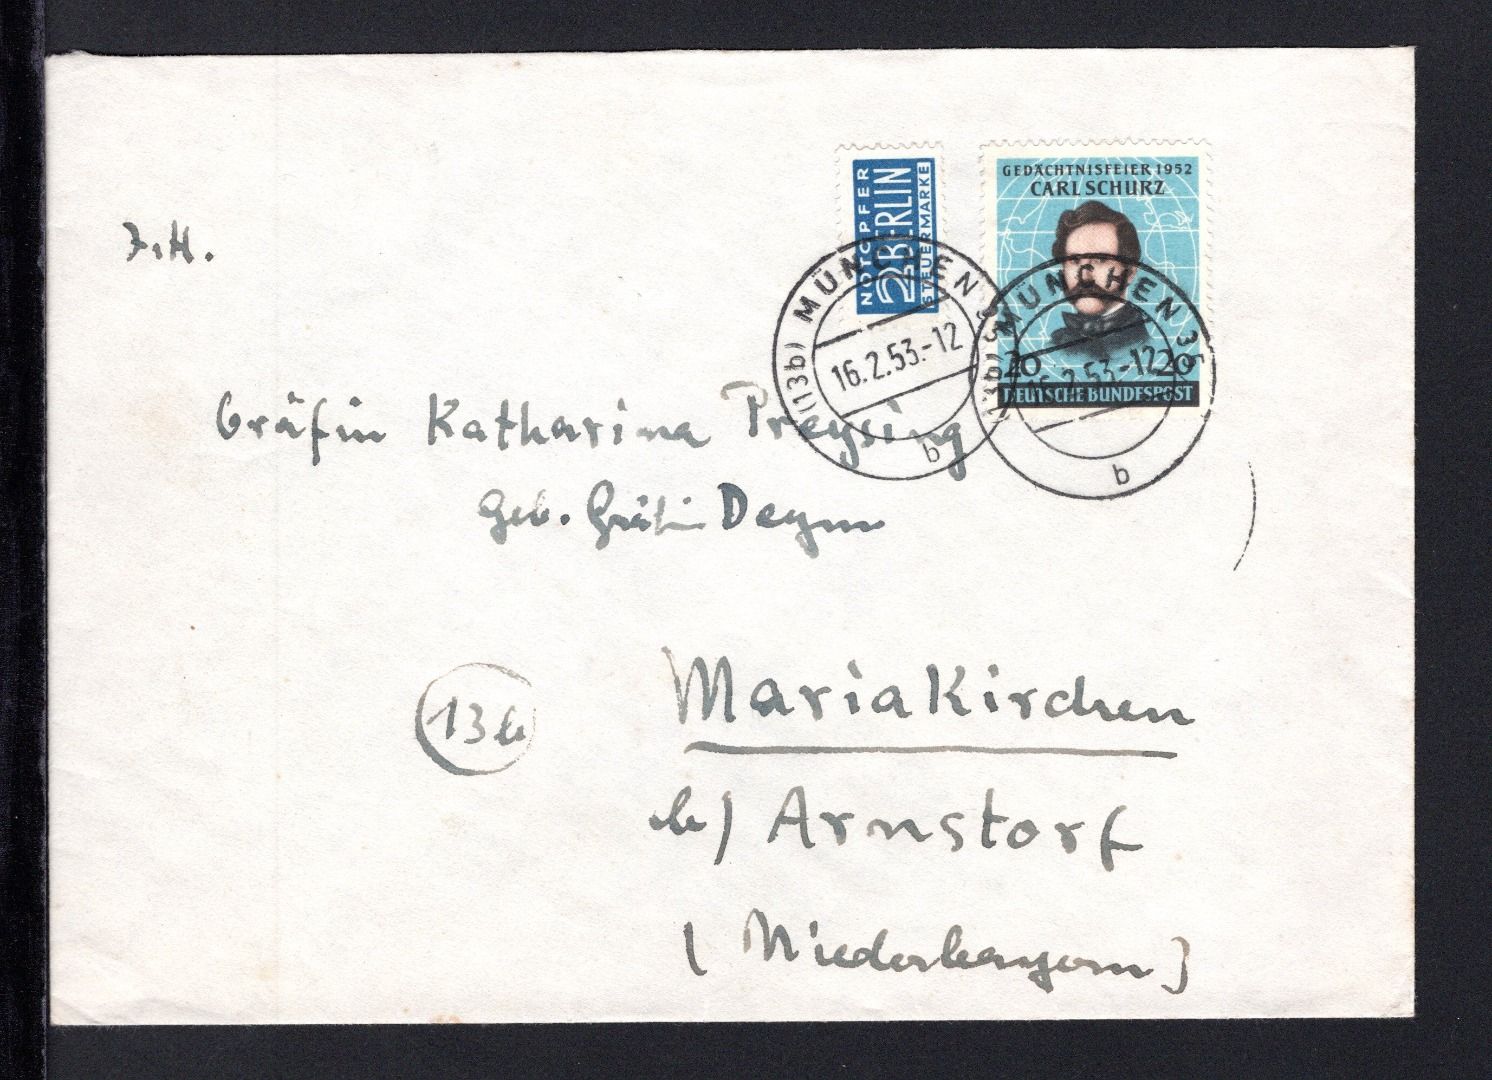 NOTOPFER
2 BERLIN
STEUERMARKE
GEDÄCHTNISFEIER 1952
CARL SCHURZ
20 20
DEUTSCHE BUNDESPOST
(13b) MÜNCHEN 35
16.2.53.-12
b
(13b) MÜNCHEN 35
16.2.53.-12
b
I.H.
Gräfin Katharina Preysing
geb. Gräfin Deym
13b
Mariakirchen
b/ Arnstorf
(Niederbayern)